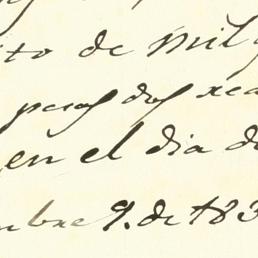 ito de mil
pesos dos rea
en el dia d
mbre 9. de 183